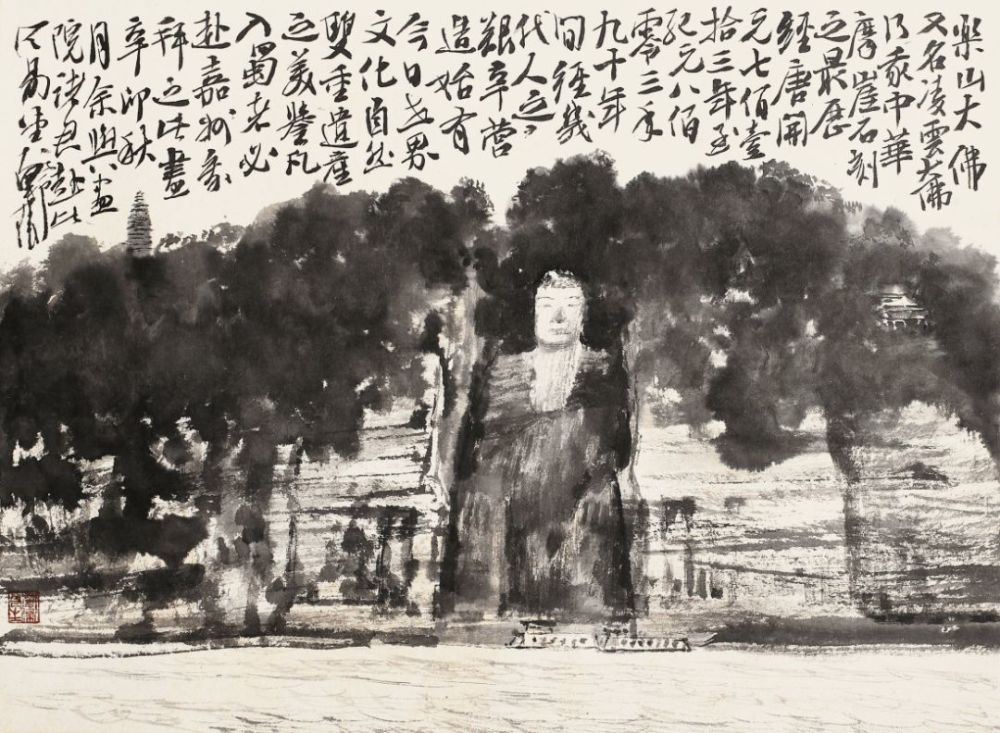 樂山大佛
又名凌雲大佛
乃我中華
摩崖石刻
之最歷
經唐開
元七佰壹
拾三年至
紀元八佰
零三年
九十年
間經幾
代人之
艱辛營
造始有
今日世界
文化自然
雙重遺產
之美譽凡
入蜀者必
赴嘉州亲
拜之此畫
辛卯秋
月余與畫
院諸君赴此